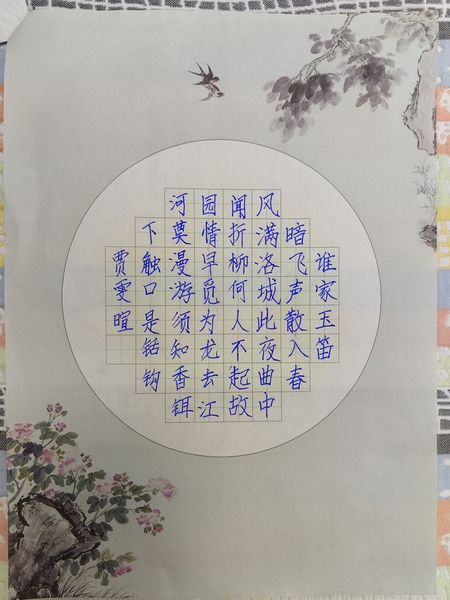 谁家玉笛
暗飞声散入春
风满洛城此夜曲中
闻折柳何人不起故
园情早觅为龙去江
河莫漫游须知香铒
下触口是铦钩
贾雯暄